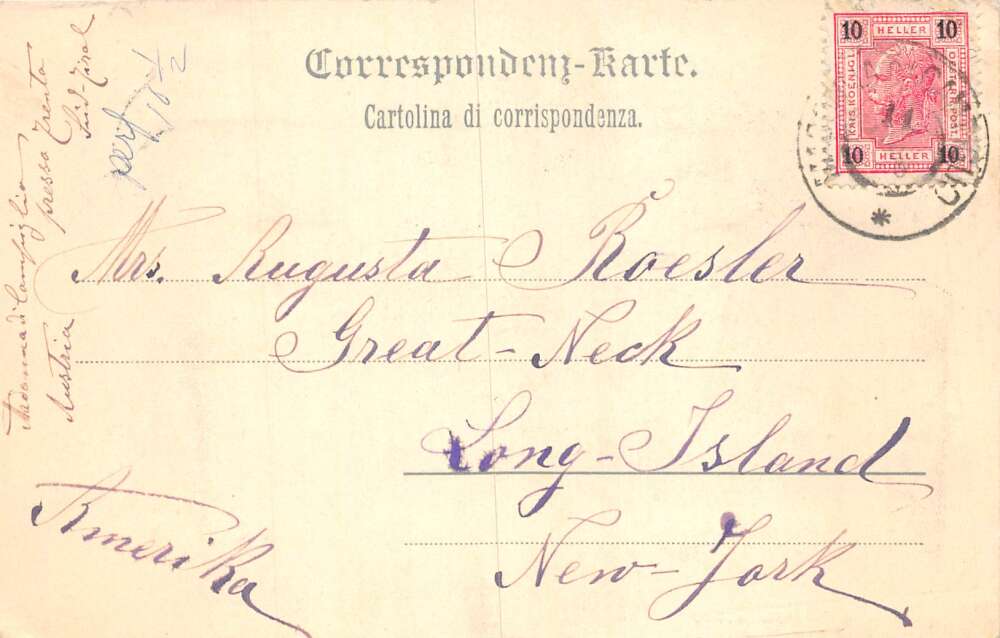 Correspondenz-Karte.
Cartolina di corrispondenza.
10 HELLER 10
KAIS. KOENIGL. OESTERR. POST.
11
10 HELLER 10
Mrs. Augusta Roesler
Great-Neck
Long-Island
New-York
Amerika
Madonna di Campiglio
presso Trento
Süd-Tirol
Austria
perf